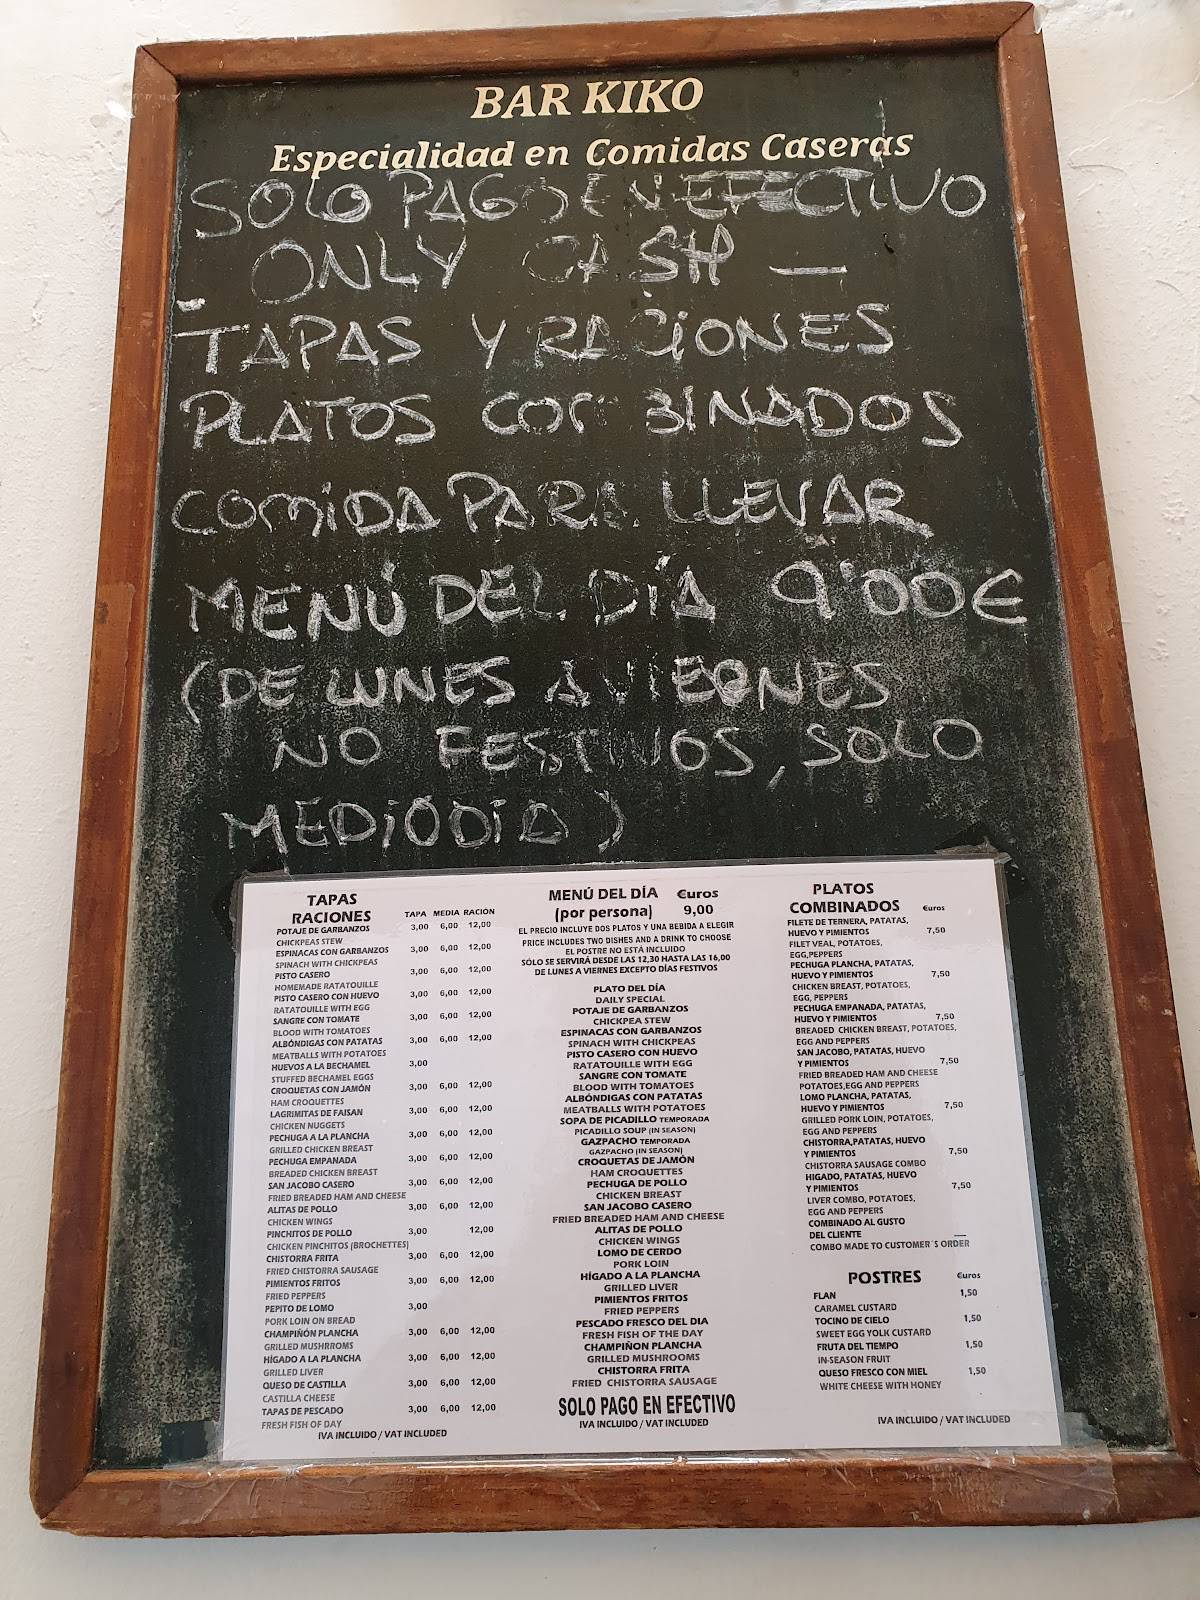 BAR KIKO
Especialidad en Comidas Caseras
SOLO PAGO EN EFECTIVO
- ONLY CASH -
TAPAS Y RACIONES
PLATOS COMBINADOS
COMIDA PARA LLEVAR
MENÚ DEL DÍA 9'00€
(DE LUNES A VIERNES
NO FESTIVOS, SOLO
MEDIODIA)
TAPAS
RACIONES TAPA MEDIA RACIÓN
POTAJE DE GARBANZOS 3,00 6,00 12,00
CHICKPEAS STEW
ESPINACAS CON GARBANZOS 3,00 6,00 12,00
SPINACH WITH CHICKPEAS
PISTO CASERO 3,00 6,00 12,00
HOMEMADE RATATOUILLE
PISTO CASERO CON HUEVO 3,00 6,00 12,00
RATATOUILLE WITH EGG
SANGRE CON TOMATE 3,00 6,00 12,00
BLOOD WITH TOMATOES
ALBÓNDIGAS CON PATATAS 3,00 6,00 12,00
MEATBALLS WITH POTATOES
HUEVOS A LA BECHAMEL 3,00
STUFFED BECHAMEL EGGS
CROQUETAS CON JAMÓN 3,00 6,00 12,00
HAM CROQUETTES
LAGRIMITAS DE FAISAN 3,00 6,00 12,00
CHICKEN NUGGETS
PECHUGA A LA PLANCHA 3,00 6,00 12,00
GRILLED CHICKEN BREAST
PECHUGA EMPANADA 3,00 6,00 12,00
BREADED CHICKEN BREAST
SAN JACOBO CASERO 3,00 6,00 12,00
FRIED BREADED HAM AND CHEESE
ALITAS DE POLLO 3,00 6,00 12,00
CHICKEN WINGS
PINCHITOS DE POLLO 3,00 12,00
CHICKEN PINCHITOS (BROCHETTES)
CHISTORRA FRITA 3,00 6,00 12,00
FRIED CHISTORRA SAUSAGE
PIMIENTOS FRITOS 3,00 6,00 12,00
FRIED PEPPERS
PEPITO DE LOMO 3,00
PORK LOIN ON BREAD
CHAMPIÑÓN PLANCHA 3,00 6,00 12,00
GRILLED MUSHRROMS
HÍGADO A LA PLANCHA 3,00 6,00 12,00
GRILLED LIVER
QUESO DE CASTILLA 3,00 6,00 12,00
CASTILLA CHEESE
TAPAS DE PESCADO 3,00 6,00 12,00
FRESH FISH OF DAY
IVA INCLUIDO / VAT INCLUDED
MENÚ DEL DÍA €uros
(por persona) 9,00
EL PRECIO INCLUYE DOS PLATOS Y UNA BEBIDA A ELEGIR
PRICE INCLUDES TWO DISHES AND A DRINK TO CHOOSE
EL POSTRE NO ESTÁ INCLUIDO
SÓLO SE SERVIRÁ DESDE LAS 12,30 HASTA LAS 16,00
DE LUNES A VIERNES EXCEPTO DÍAS FESTIVOS
PLATO DEL DÍA
DAILY SPECIAL
POTAJE DE GARBANZOS
CHICKPEA STEW
ESPINACAS CON GARBANZOS
SPINACH WITH CHICKPEAS
PISTO CASERO CON HUEVO
RATATOUILLE WITH EGG
SANGRE CON TOMATE
BLOOD WITH TOMATOES
ALBÓNDIGAS CON PATATAS
MEATBALLS WITH POTATOES
SOPA DE PICADILLO TEMPORADA
PICADILLO SOUP (IN SEASON)
GAZPACHO TEMPORADA
GAZPACHO (IN SEASON)
CROQUETAS DE JAMÓN
HAM CROQUETTES
PECHUGA DE POLLO
CHICKEN BREAST
SAN JACOBO CASERO
FRIED BREADED HAM AND CHEESE
ALITAS DE POLLO
CHICKEN WINGS
LOMO DE CERDO
PORK LOIN
HÍGADO A LA PLANCHA
GRILLED LIVER
PIMIENTOS FRITOS
FRIED PEPPERS
PESCADO FRESCO DEL DIA
FRESH FISH OF THE DAY
CHAMPIÑON PLANCHA
GRILLED MUSHROOMS
CHISTORRA FRITA
FRIED CHISTORRA SAUSAGE
SOLO PAGO EN EFECTIVO
IVA INCLUIDO / VAT INCLUDED
PLATOS
COMBINADOS €uros
FILETE DE TERNERA, PATATAS,
HUEVO Y PIMIENTOS 7,50
FILET VEAL, POTATOES,
EGG,PEPPERS
PECHUGA PLANCHA, PATATAS,
HUEVO Y PIMIENTOS 7,50
CHICKEN BREAST, POTATOES,
EGG, PEPPERS
PECHUGA EMPANADA, PATATAS,
HUEVO Y PIMIENTOS 7,50
BREADED CHICKEN BREAST, POTATOES,
EGG AND PEPPERS
SAN JACOBO, PATATAS, HUEVO
Y PIMIENTOS 7,50
FRIED BREADED HAM AND CHEESE
POTATOES,EGG AND PEPPERS
LOMO PLANCHA, PATATAS,
HUEVO Y PIMIENTOS 7,50
GRILLED PORK LOIN, POTATOES,
EGG AND PEPPERS
CHISTORRA,PATATAS, HUEVO
Y PIMIENTOS 7,50
CHISTORRA SAUSAGE COMBO
HIGADO, PATATAS, HUEVO
Y PIMIENTOS 7,50
LIVER COMBO, POTATOES,
EGG AND PEPPERS
COMBINADO AL GUSTO
DEL CLIENTE __
COMBO MADE TO CUSTOMER´S ORDER
POSTRES €uros
FLAN 1,50
CARAMEL CUSTARD
TOCINO DE CIELO 1,50
SWEET EGG YOLK CUSTARD
FRUTA DEL TIEMPO 1,50
IN-SEASON FRUIT
QUESO FRESCO CON MIEL 1,50
WHITE CHEESE WITH HONEY
IVA INCLUIDO / VAT INCLUDED